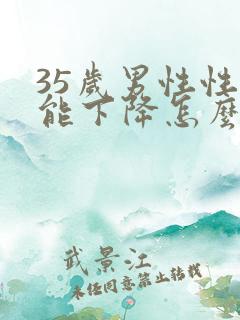 35歲男性性
能下降怎麼
武景江
未经同意禁止转载